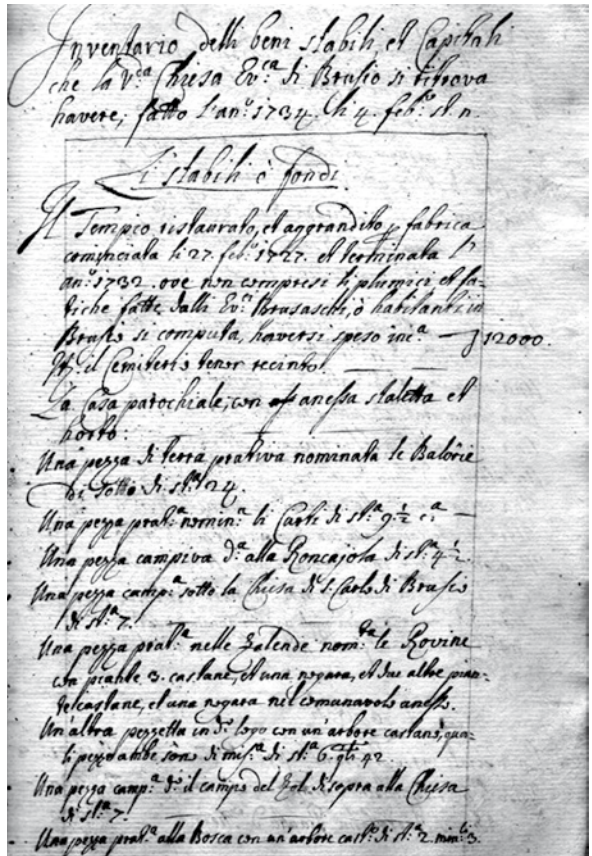 Inventario delli beni stabili, et Capitali
che la V.da Chiesa Ev.ca di Brusio si ritrova
havere, fatto l'an.o 1734. li 4. feb.o st. n.
Li stabili ò fondi.
Il Tempio ristaurato, et aggrandito p fabrica
cominciata li 27. feb.o 1727. et terminata l'
an.o 1732. ove non compresi li plumici et fa-
tiche fatte dalli Ev.ci Brusaschi, ò habitanti in
Brusio si computa, haversi speso in 12000.
It. il Cemiterio tener recinto.
La Casa parochiale, con anessa staletta et
horto.
Una pezza di terra prativa nominata le Balörie
di sotto di st.a 24.
Una pezza prat.a nomin.a li Curti di st.a 9 ½ c.a
Una pezza campiva d.a alla Roncajola di st.a 4 ½.
Una pezza camp.a sotto la Chiesa di S. Carlo di Brusio
di st.a 7.
Una pezza prat.a nelle Zalende nom.ta le Rovine
con piante 3. castane, et una nogara, et due altre pian-
te castane, et una nogara nel comunavolo anesso.
Un'altra pezzetta in d.o logo con un'arbore castano, qua-
li pezze ambe sono di mis.a di st.a 6. 42
Una pezza camp.a d.o il campo del Zol di sopra alla Chiesa
di st.a 7.
Una pezza prat.a alla Bosca con un'arbore cast.o di st.a 2 3.